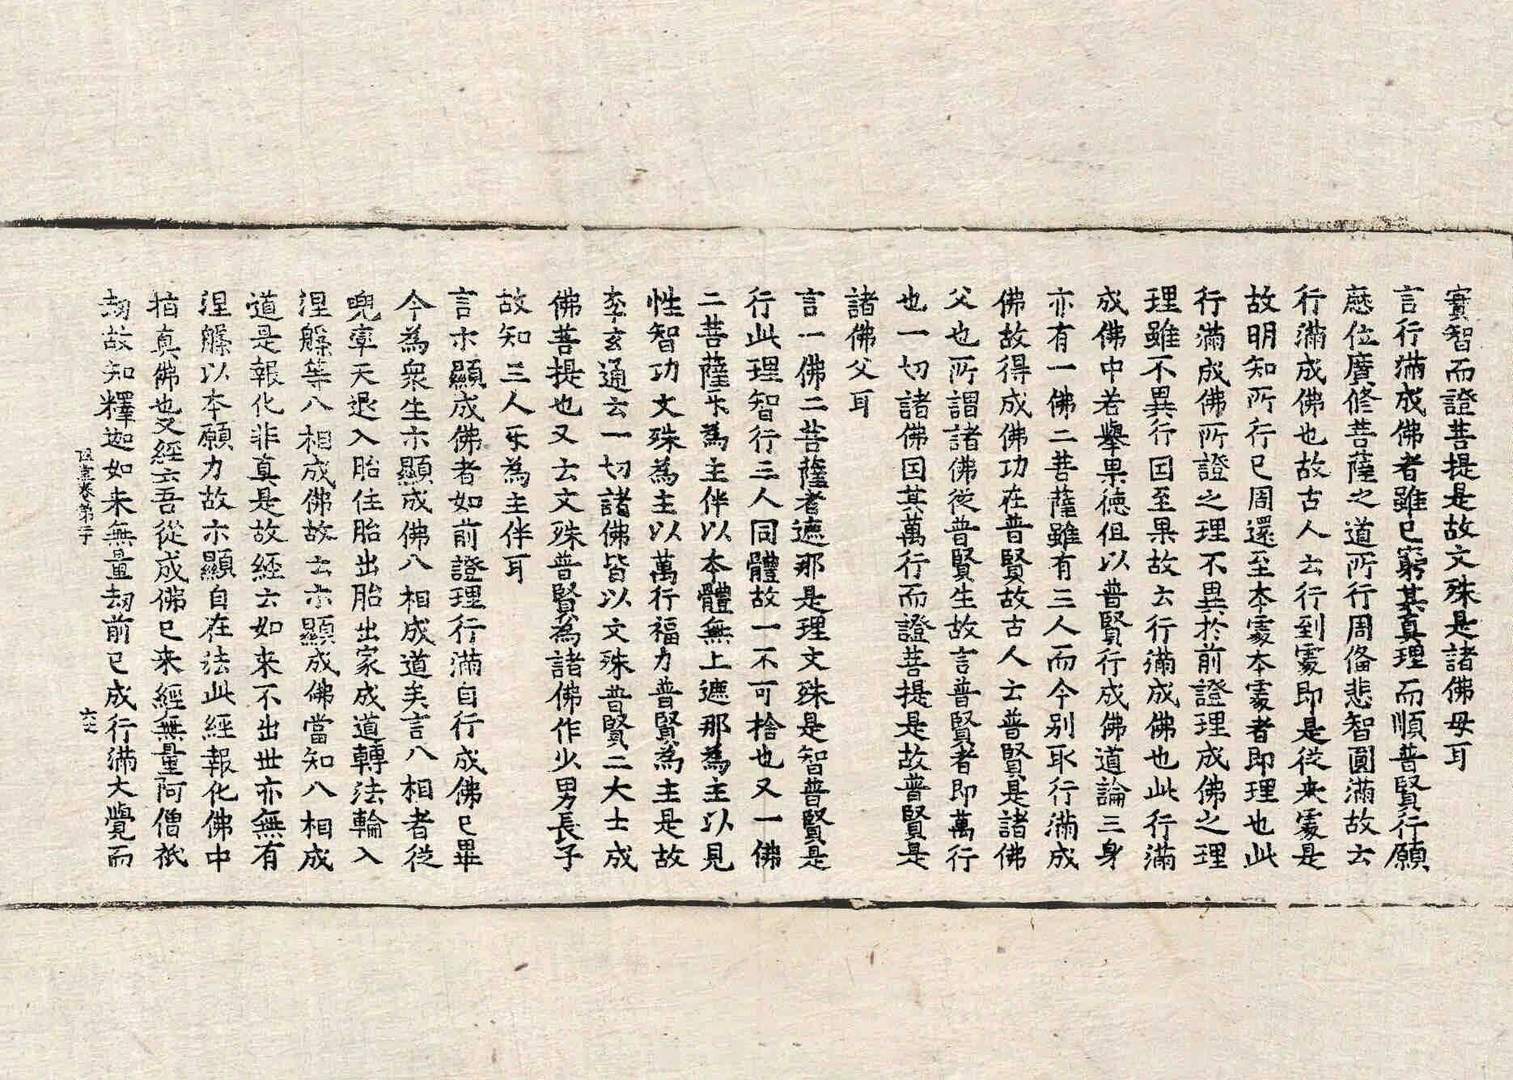 實智而證菩提是故文殊是諸佛母耳
言行滿成佛者雖已窮其真理而順普賢行願
歷位廣修菩薩之道所行周備悲智圓滿故云
行滿成佛也故古人云行到處即是從来處是
故明知所行已周還至本處本處者即理也此
行滿成佛所證之理不異於前證理成佛之理
理雖不異行因至果故云行滿成佛也此行滿
成佛中若舉果德但以普賢行成佛道論三身
亦有一佛二菩薩雖有三人而今別取行滿成
佛故得成佛功在普賢故古人士普賢是諸佛
父也所謂諸佛從普賢生故言普賢者即萬行
也一切諸佛因其萬行而證菩提是故普賢是
諸佛父耳
言一佛二菩薩者遮那是理文殊是智普賢是
行此理智行三人同體故一不可捨也又一佛
二菩薩乐為主伴以本體無上遮那為主以見
性智功文殊為主以萬行福力普賢為主是故
李玄通云一切諸佛皆以文殊普賢二大士成
佛菩提也又云文殊普賢為諸佛作少男長子
故知三人乐為主伴耳
言示顯成佛者如前證理行滿自行成佛已畢
今為衆生示顯成佛八相成道矣言八相者從
兜率天退入胎住胎出胎出家成道轉法輪入
涅槃等八相成佛故云示顯成佛當知八相成
道是報化非真是故經云如来不出世亦無有
涅槃以本願力故示顯自在法此經報化佛中
指真佛也又經云吾從成佛已来經無量阿僧祇
劫故知釋迦如来無量劫前已成行滿大覺而
卷第二
六